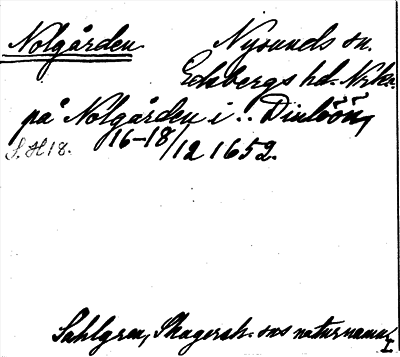 Nolgården Nysunds sn.
Edsbergs hd. Nrke.
på Nolgården i .. Dinlöön,
16-18/12 1652.
S. H 18.
Sahlgren, Skagersh. sns naturnamn I